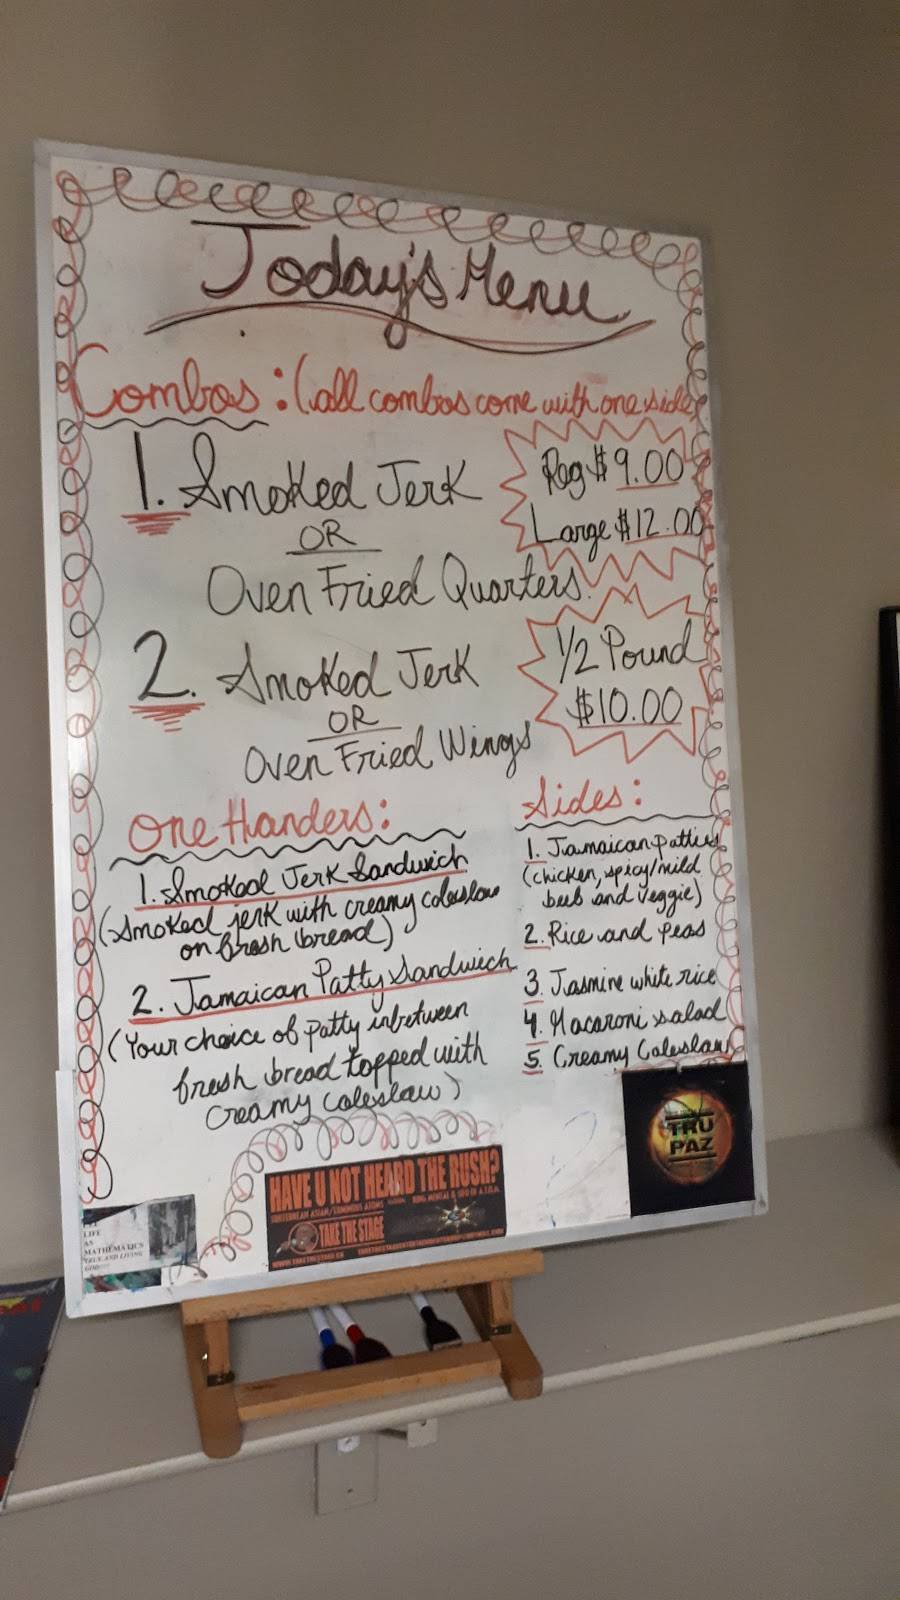 Today's Menu
Combos: (all combos come with one side
1. Smoked Jerk
OR
Oven Fried Quarters
Reg $9.00
Large $12.00
2. Smoked Jerk
OR
Oven Fried Wings
1/2 Pound
$10.00
One Handers:
1. Smoked Jerk Sandwich
(Smoked jerk with creamy coleslaw
on fresh bread)
2. Jamaican Patty Sandwich
(Your choice of patty inbetween
fresh bread topped with
creamy coleslaw)
Sides:
1. Jamaican Patties
(chicken, spicy/mild
beef and veggie)
2. Rice and Peas
3. Jasmine white rice
4. Macaroni salad
5. Creamy Coleslaw
TRU
PAZ
HAVE U NOT HEARD THE RUSH?
TAKE THE STAGE
WWW.TAKETHESTAGE.CA
LIFE
AS
MATHEMATICS
TRUE AND LIVING
GOD!!!